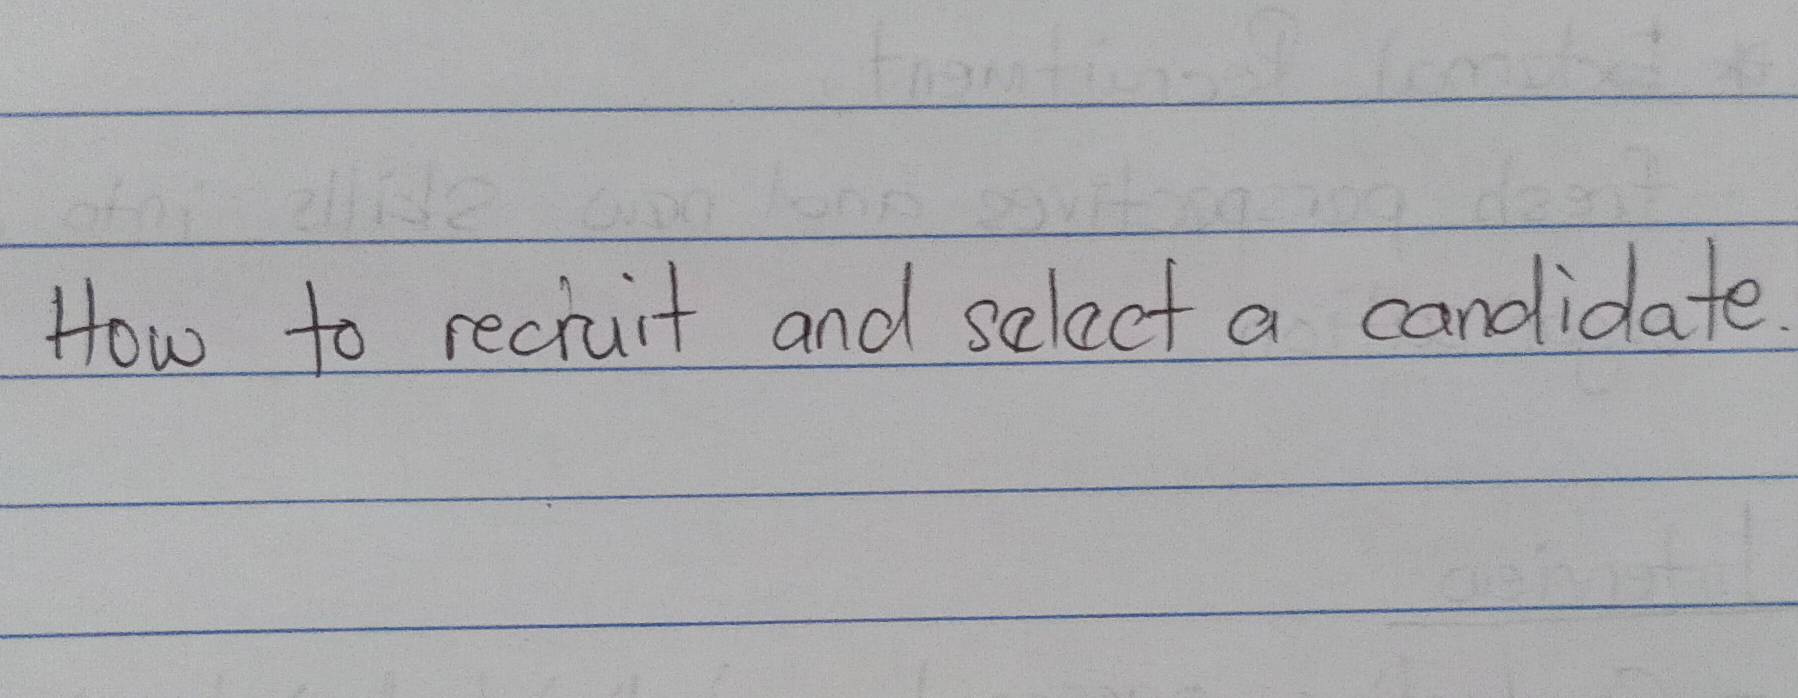 How to recruit and select a candidate.